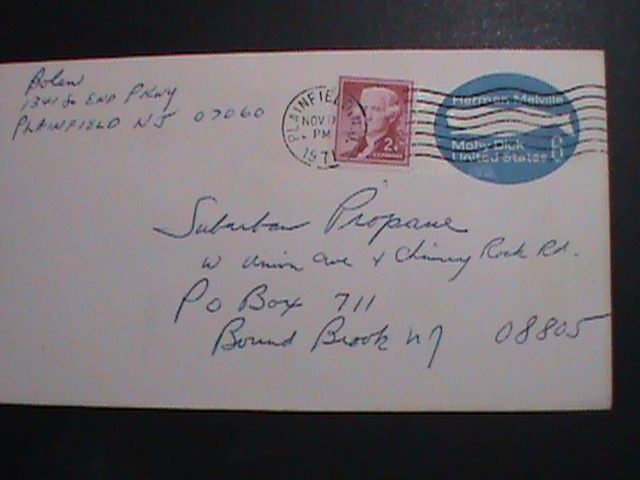 Bolen
1341 So End Pkwy
PLAINFIELD NJ 07060
PLAINFIELD
NOV
PM
197
2¢
Herman Melville
Moby Dick
United States 6
Suburban Propane
W Union Ave & Chimney Rock Rd.
PO Box 711
Bound Brook NJ 08805